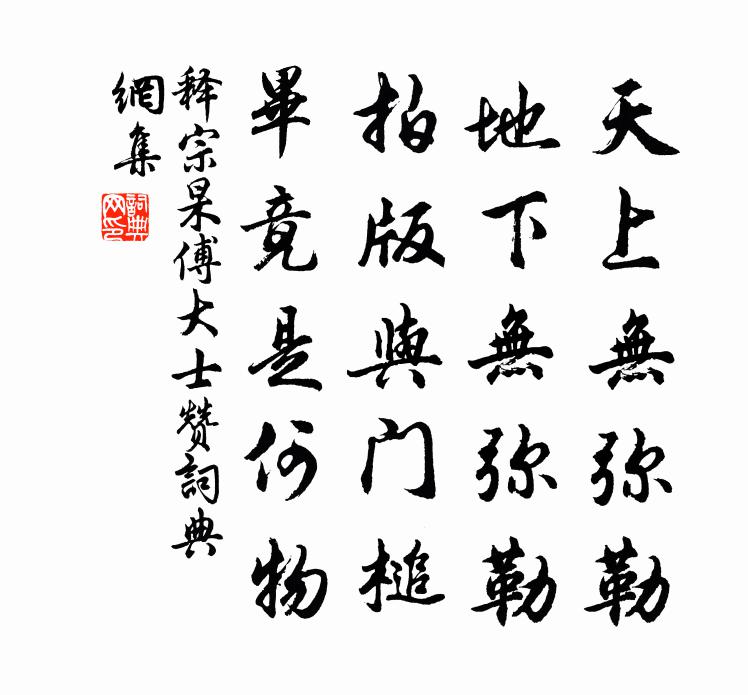 天上無弥勒
地下無弥勒
拍版與门槌
畢竟是何物
释宗杲傅大士赞詞典
網集
詞典网印